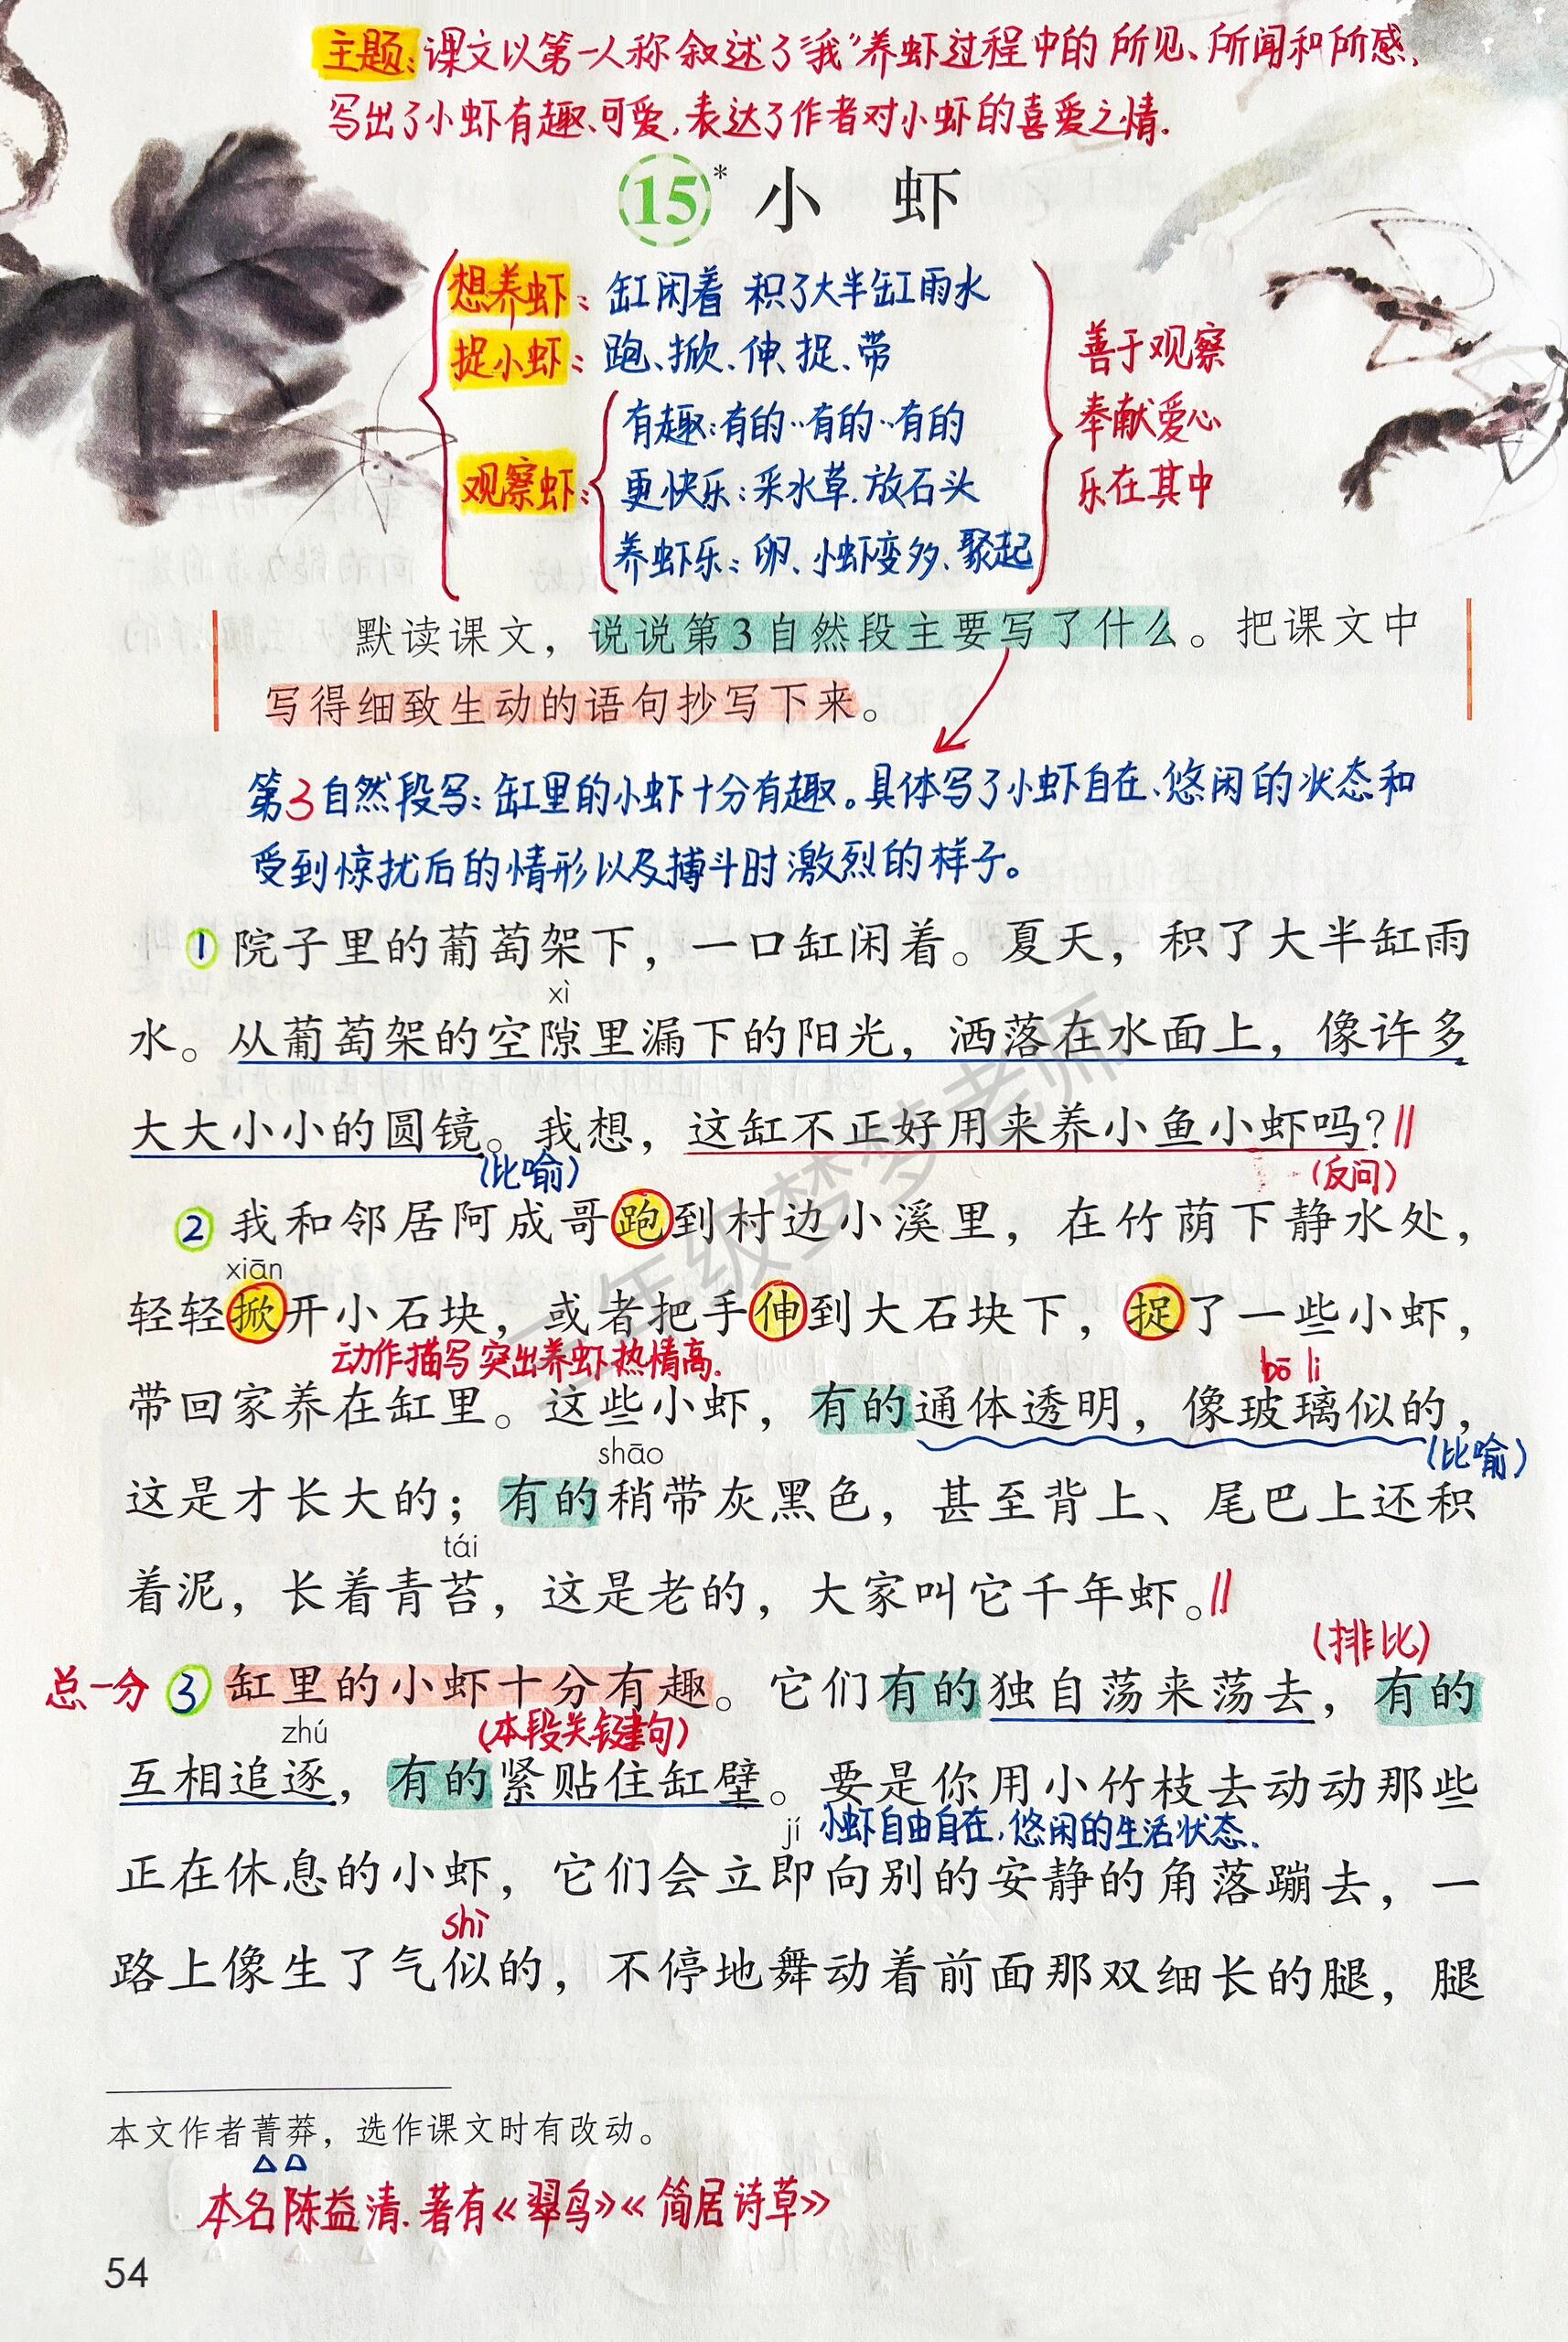 主题:课文以第一人称叙述了“我”养虾过程中的所见、所闻和所感,
写出了小虾有趣、可爱,表达了作者对小虾的喜爱之情.
15* 小 虾
想养虾: 缸闲着 积了大半缸雨水
捉小虾: 跑、掀、伸、捉、带
观察虾:
有趣:有的··有的··有的
更快乐:采水草.放石头
养虾乐:卵、小虾变多、聚起
善于观察
奉献爱心
乐在其中
默读课文,说说第3自然段主要写了什么。把课文中
写得细致生动的语句抄写下来。
第3自然段写:缸里的小虾十分有趣。具体写了小虾自在、悠闲的状态和
受到惊扰后的情形以及搏斗时激烈的样子。
①院子里的葡萄架下,一口缸闲着。夏天,积了大半缸雨
xì
水。从葡萄架的空隙里漏下的阳光,洒落在水面上,像许多
大大小小的圆镜。我想,这缸不正好用来养小鱼小虾吗?||
(比喻) (反问)
②我和邻居阿成哥跑到村边小溪里,在竹荫下静水处,
xiān
轻轻掀开小石块,或者把手伸到大石块下,捉了一些小虾,
动作描写突出养虾热情高. bō li
带回家养在缸里。这些小虾,有的通体透明,像玻璃似的,
shāo (比喻)
这是才长大的;有的稍带灰黑色,甚至背上、尾巴上还积
tái
着泥,长着青苔,这是老的,大家叫它千年虾。||
(排比)
总一分 ③缸里的小虾十分有趣。它们有的独自荡来荡去,有的
zhú (本段关键句)
互相追逐,有的紧贴住缸壁。要是你用小竹枝去动动那些
jí 小虾自由自在,悠闲的生活状态.
正在休息的小虾,它们会立即向别的安静的角落蹦去,一
shì
路上像生了气似的,不停地舞动着前面那双细长的腿,腿
本文作者菁莽,选作课文时有改动。
本名陈益清.著有《翠鸟》《简居诗草》
54
二年级梦梦老师